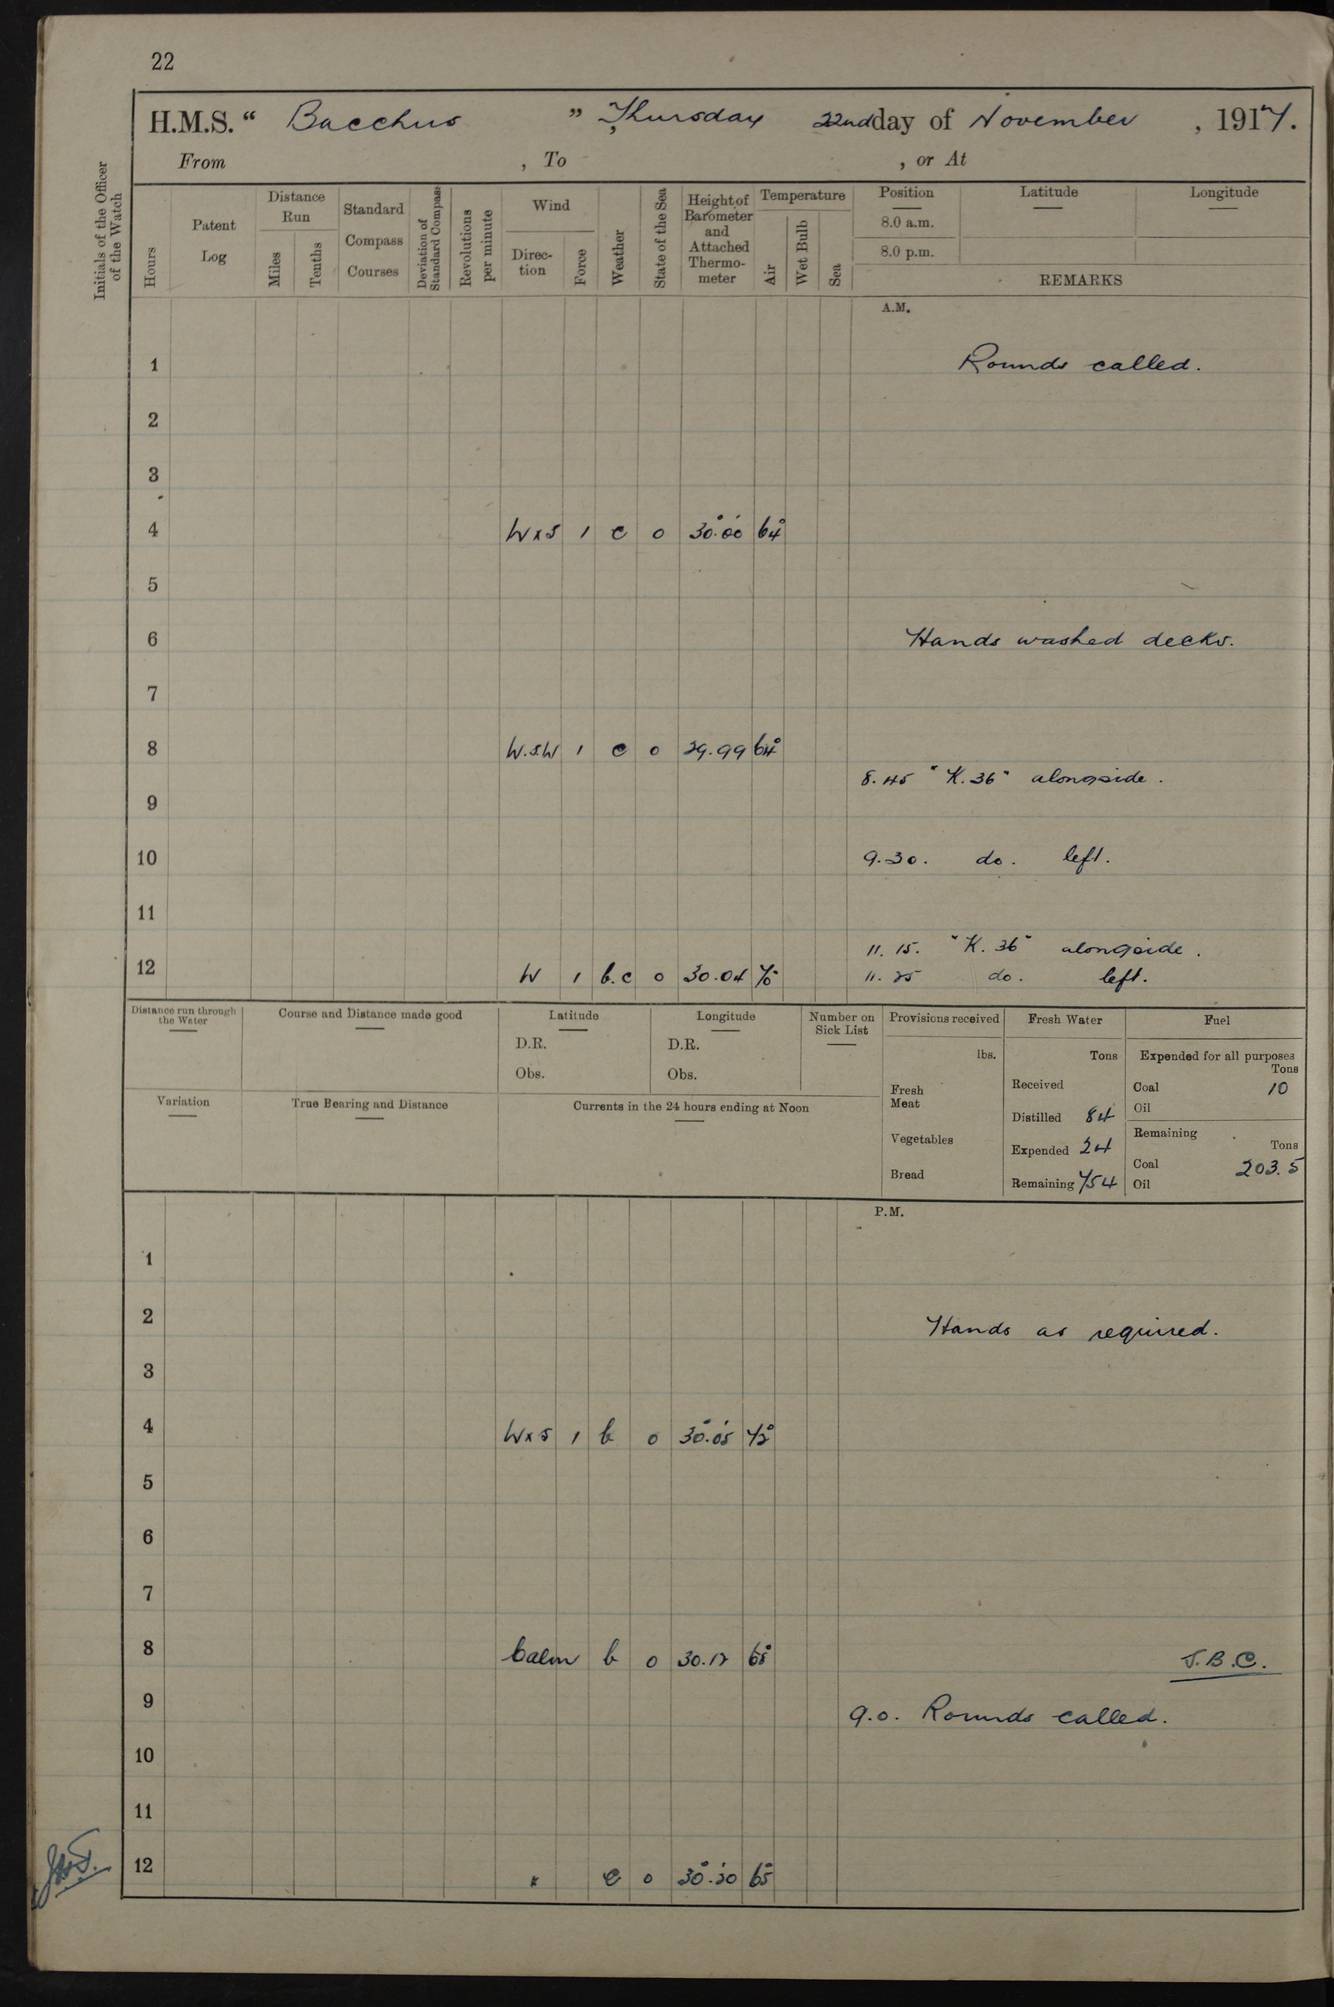 22
H.M.S. “ Bacchus ” Thursday 22nd day of November , 1917.
From , To , or At
Initials of the Officer of the Watch
Hours
Patent Log
Distance Run
Miles
Tenths
Standard Compass Courses
Deviation of Standard Compass
Revolutions per minute
Wind
Direction
Force
Weather
State of the Sea
Height of Barometer and Attached Thermometer
Temperature
Air
Wet Bulb
Sea
Position
8.0 a.m.
8.0 p.m.
Latitude
Longitude
REMARKS
A.M.
1 Rounds called.
2
3
4 WxS 1 c o 30.00 64°
5
6 Hands washed decks.
7
8 W.S.W 1 c o 29.99 64°
8.45 "K.36" alongside.
9
10 9.30. do. left.
11
11.15. "K.36" alongside.
12 W 1 b.c o 30.04 70 11.25 do. left.
Distance run through the Water
Course and Distance made good
Latitude
D.R.
Obs.
Longitude
D.R.
Obs.
Number on Sick List
Provisions received
lbs.
Fresh Meat
Vegetables
Bread
Fresh Water
Tons
Received
Distilled 84
Expended 24
Remaining 754
Fuel
Expended for all purposes
Tons
Coal 10
Oil
Remaining
Tons
Coal 203.5
Oil
Variation
True Bearing and Distance
Currents in the 24 hours ending at Noon
P.M.
1
2 Hands as required.
3
4 WxS 1 b o 30.05 72°
5
6
7
8 Calm b o 30.12 68° J.B.C.
9 9.0. Rounds called.
10
11
12 " c o 30.20 65°